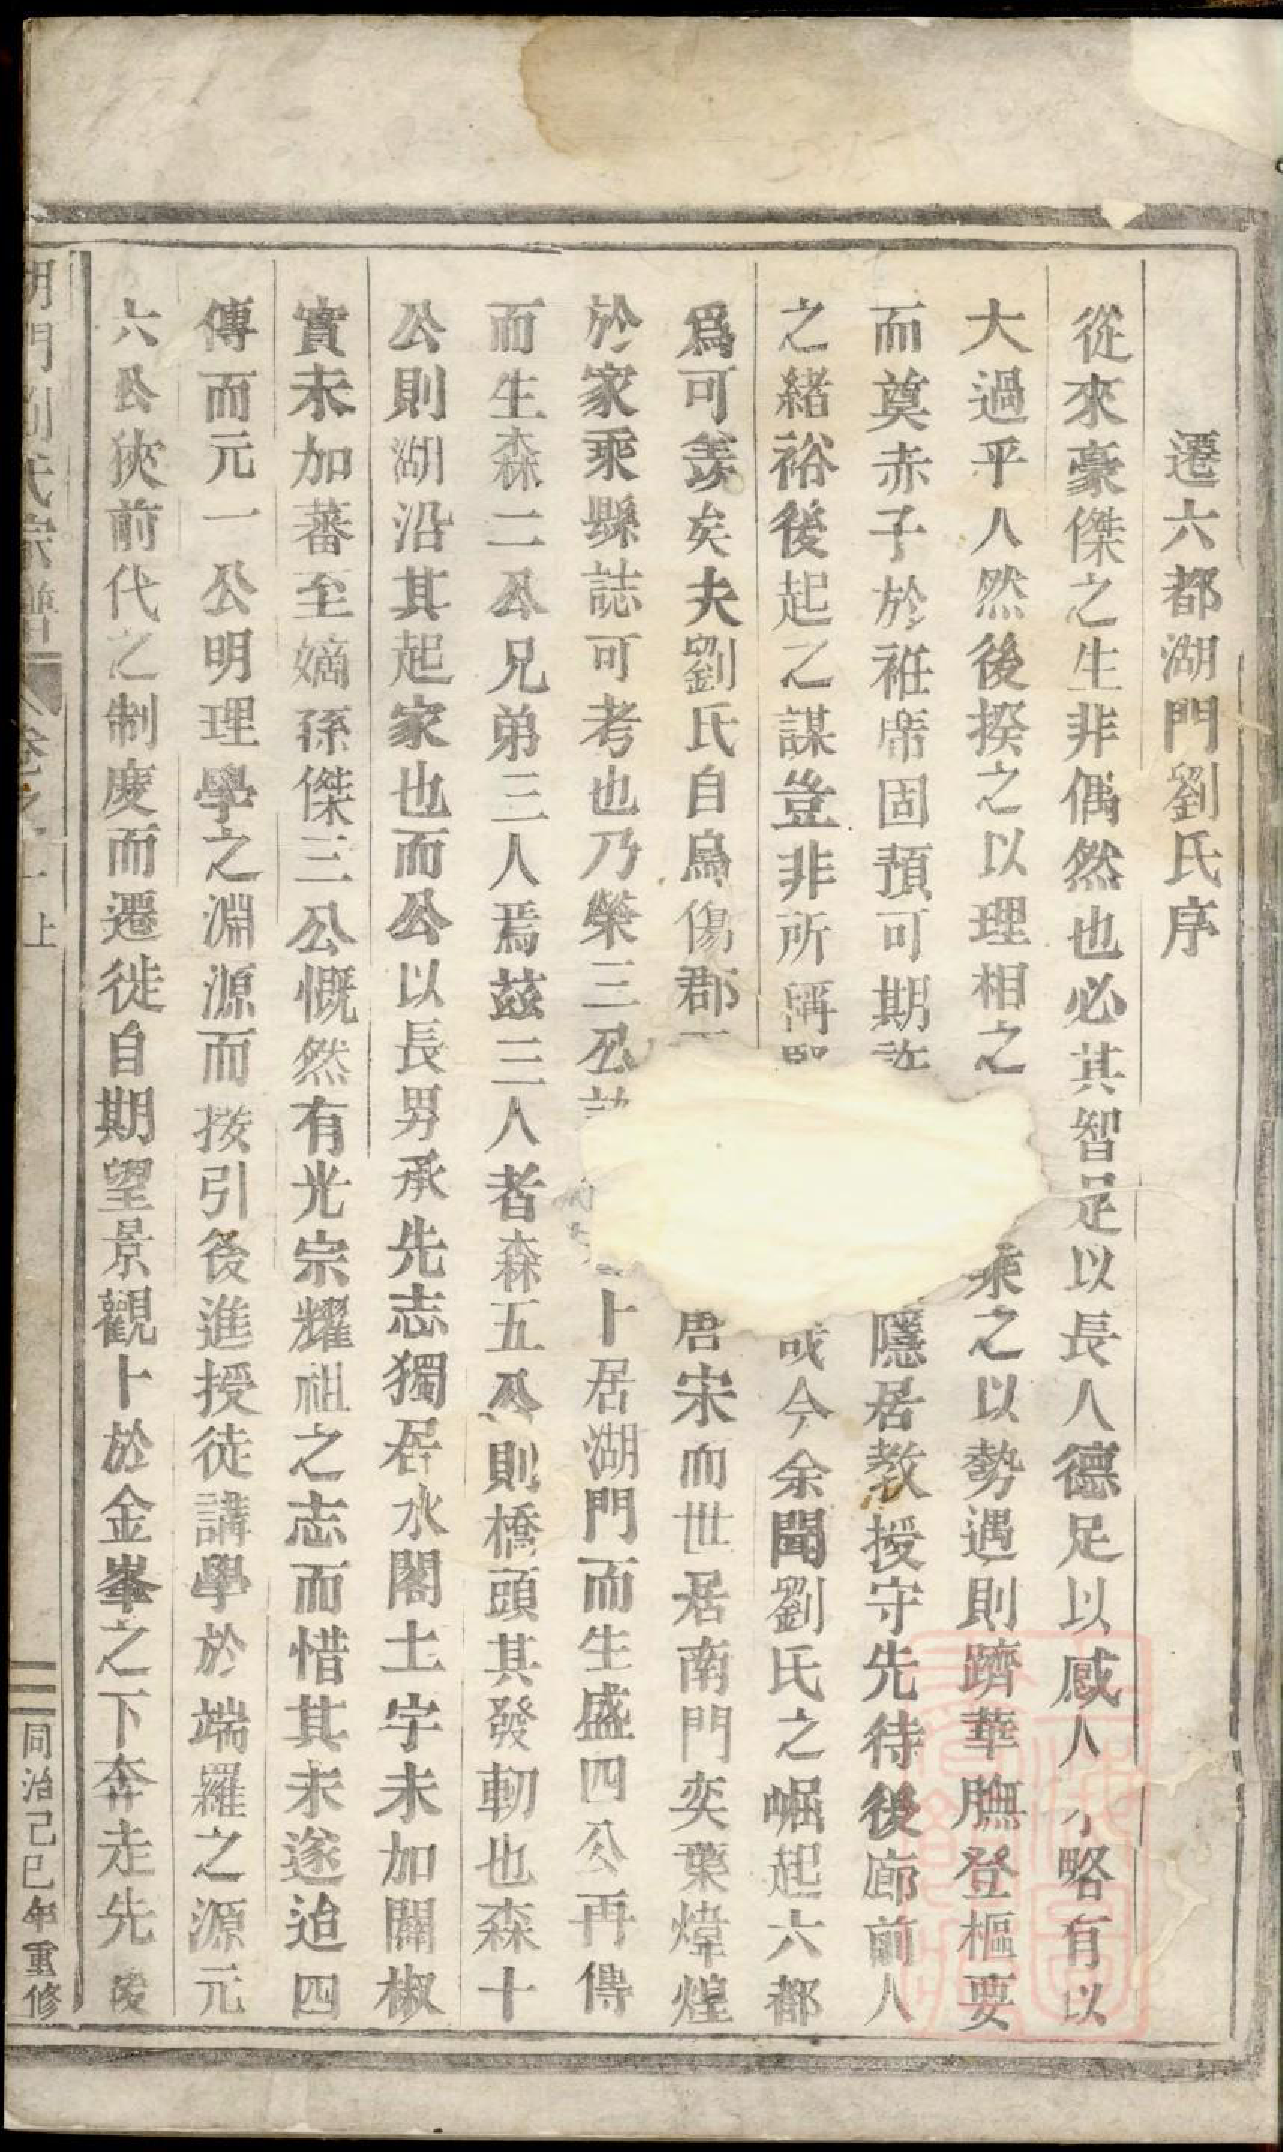 遷六都湖門劉氏序
從來豪傑之生非偶然也必其智足以長人德足以感人才略有以
大過乎人然後揆之以理相之乘之以勢遇則躋華膴登樞要
而奠赤子於袵席固預可期隱居教授守先待後廊前人
之緒裕後起之謀豈非所稱哉今余聞劉氏之崛起六都
爲可羨矣夫劉氏自烏傷郡唐宋而世居南門奕葉煒煌
於家乘縣誌可考也乃榮三公卜居湖門而生盛四公再傳
而生森二公兄弟三人焉茲三人者森五公則橋頭其發軔也森十
公則湖沿其起家也而公以長男承先志獨居水閣土宇未加闢椒
實未加蕃至嫡孫傑三公慨然有光宗耀祖之志而惜其未遂迨四
傳而元一公明理學之淵源而接引後進授徒講學於端羅之源元
六公狹前代之制度而遷徙自期望景觀卜於金峯之下奔走先後
湖門劉氏宗譜 卷之一上 同治己巳年重修